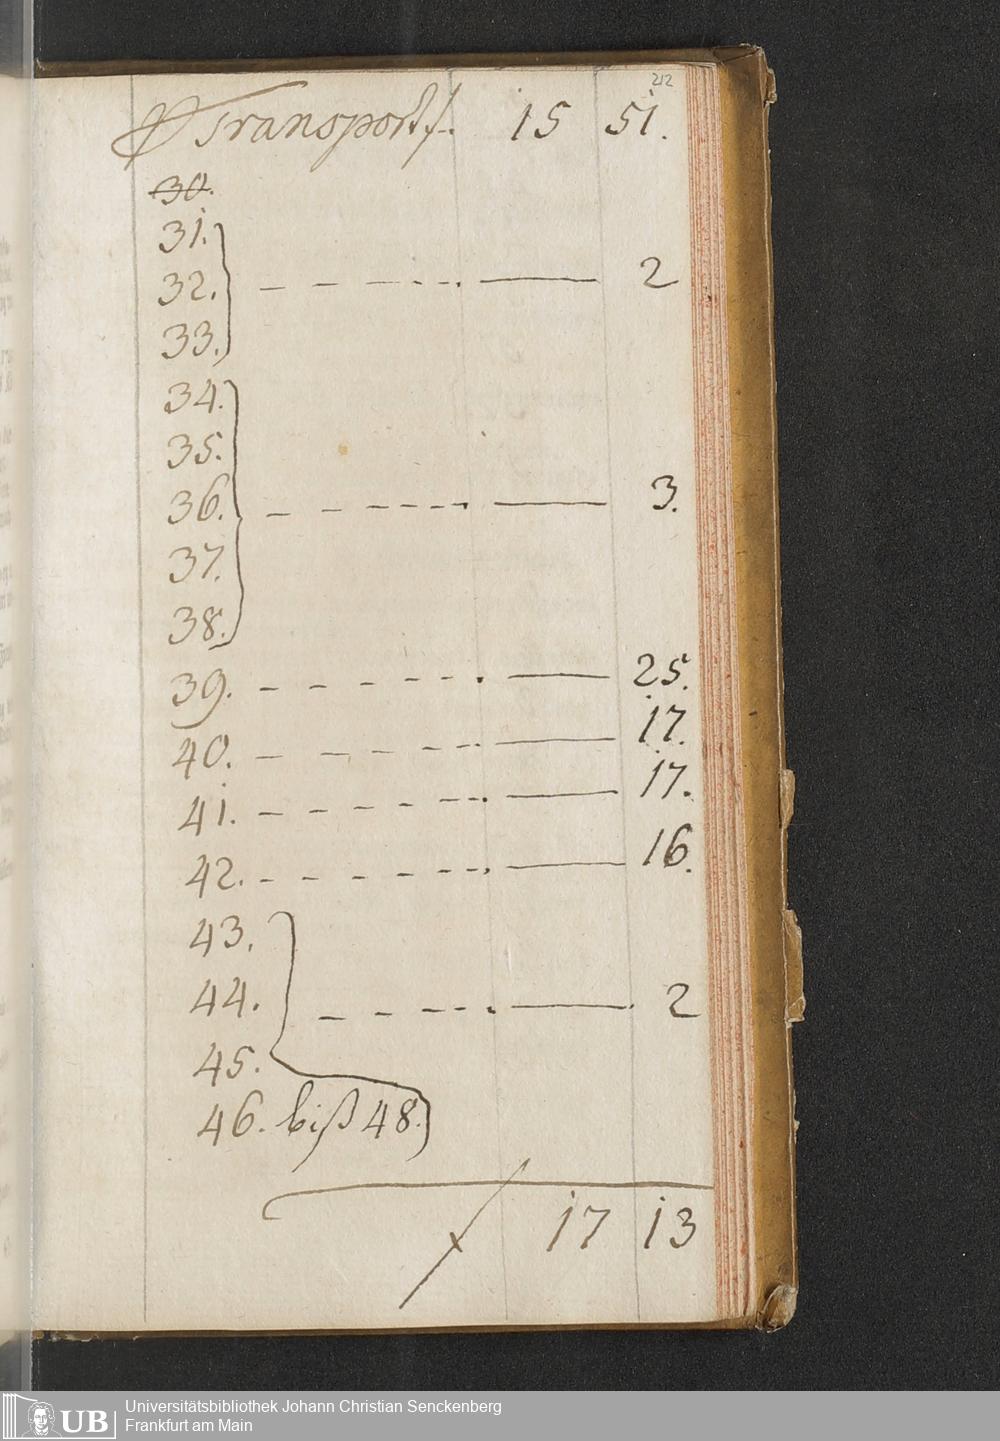 212
Transport 15 51.
30.
31.
32. – – – - - . —— 2
33.
34.
35.
36. – – - - - . —— 3.
37.
38.
39. – – - - - . —— 25.
40. – – - - - . —— 17.
41. – – - - - . —— 17.
42. – – - - - . —— 16.
43.
44. – – - - . —— 2
45.
46. biß 48.
17 13
UB Universitätsbibliothek Johann Christian Senckenberg
Frankfurt am Main